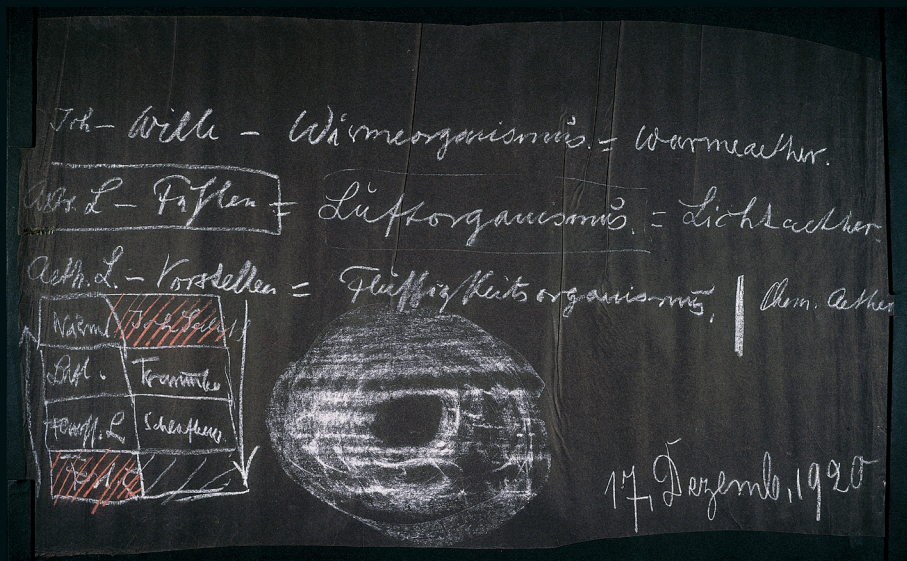 Ich – Wille – Wärmeorganismus. = Wärmeaether.
Astr. L – Fühlen = Luftorganismus. = Lichtaether.
Aeth. L. – Vorstellen = Flüssigkeitsorganismus. | Chem. Aether
Wärm
Luft.
Traum
17, Dezemb, 1920